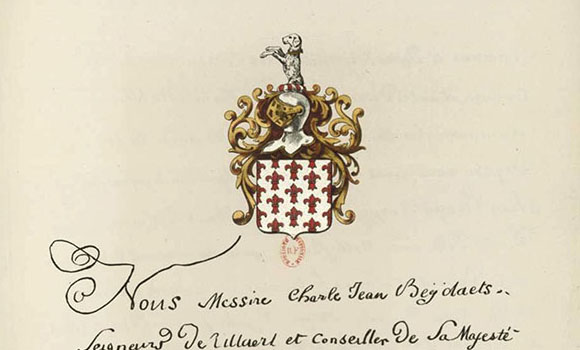 Nous Messire Charle Jean Beÿdaels..
Seigneur De Zittaert et Conseiller De Sa Majesté